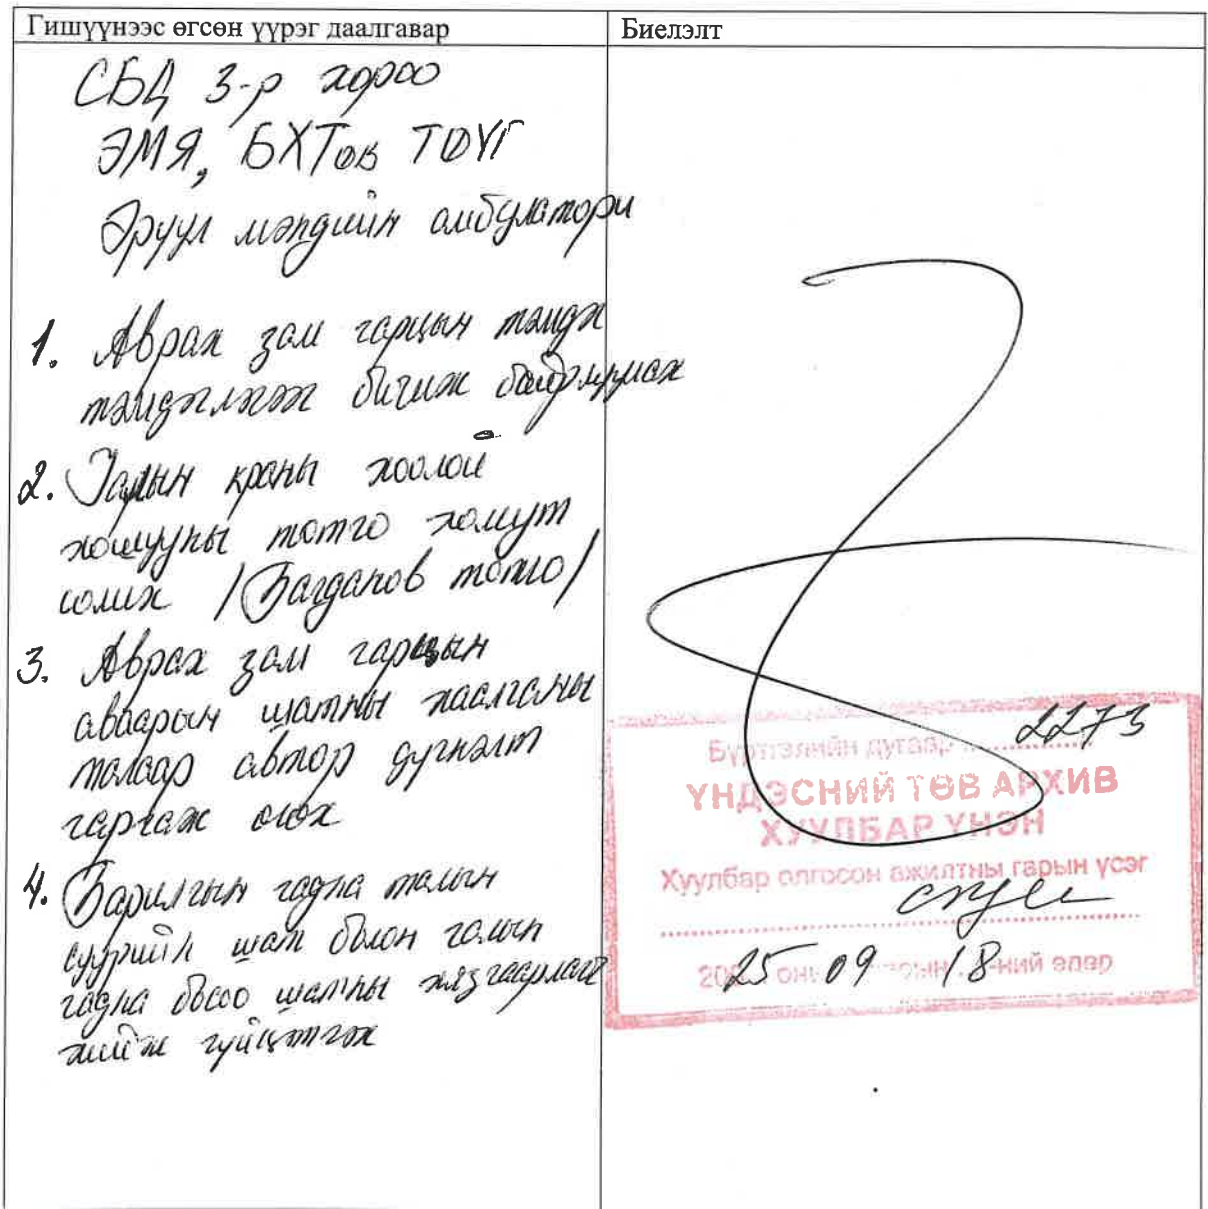 Гишүүнээс өгсөн үүрэг даалгавар
Биелэлт
СБД 3-р хороо
ЭМЯ, БХТөв ТӨҮГ
Эрүүл мэндийн амбулатори
1. Аврах зам гарцын тэмдэг
тэмдэглэгээг бичиж байрлуулах
2. Гарын краны хоолой
хошууны тотго хомут
солих /Багданов тотго/
3. Аврах зам гарцын
аваарын шатны хаалганы
талаар автор дүгнэлт
гаргаж өгөх
4. Барилгын гадна талын
суурийн шат болон галын
гадна босоо шатны хязгаарлагч
хийж гүйцэтгэх
Бүртгэлийн дугаар 2273
ҮНДЭСНИЙ ТӨВ АРХИВ
ХУУЛБАР ҮНЭН
Хуулбар олгосон ажилтны гарын үсэг
2025 оны 09 сарын 18-ний өдөр